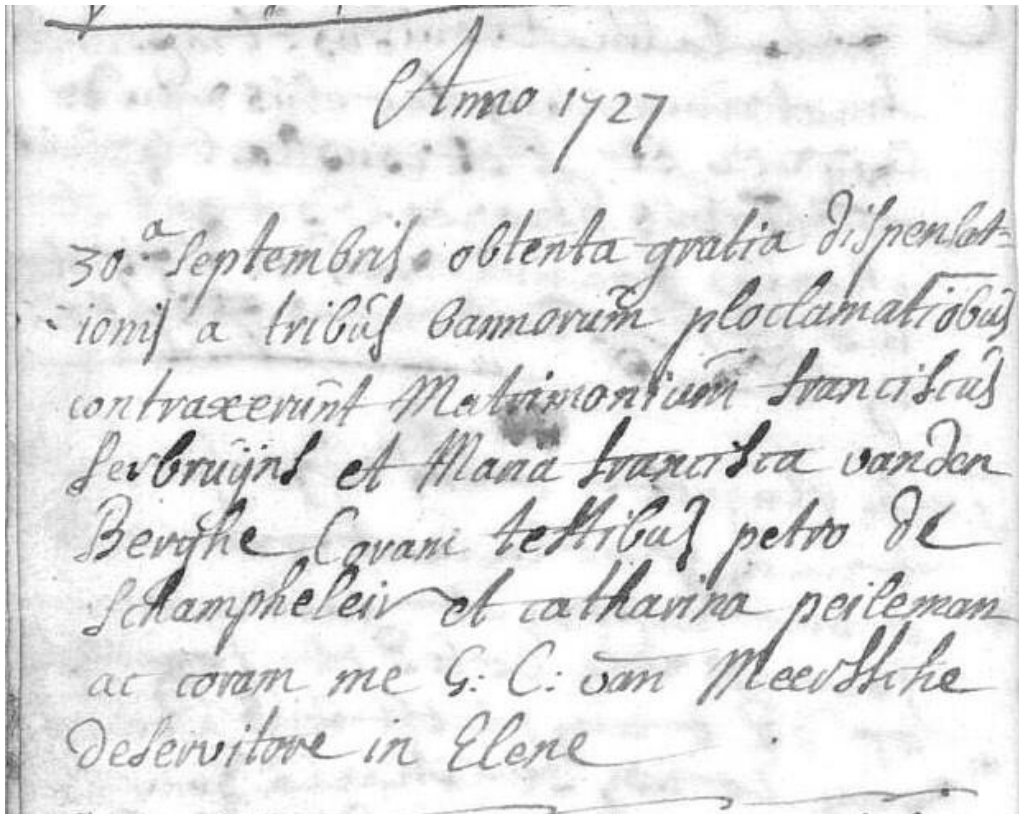 Anno 1727
30.a Septembris obtenta gratia dispensat=
ionis a tribus bannorum ploclamatiōbus
contraxerunt Matrimonium franciscus
Serbruijns et Maria francisca vanden
Berghe Coram testibus petro de
Schampheleir et catharina peileman
ac coram me G: C: van Meerssche
deservitore in Elene